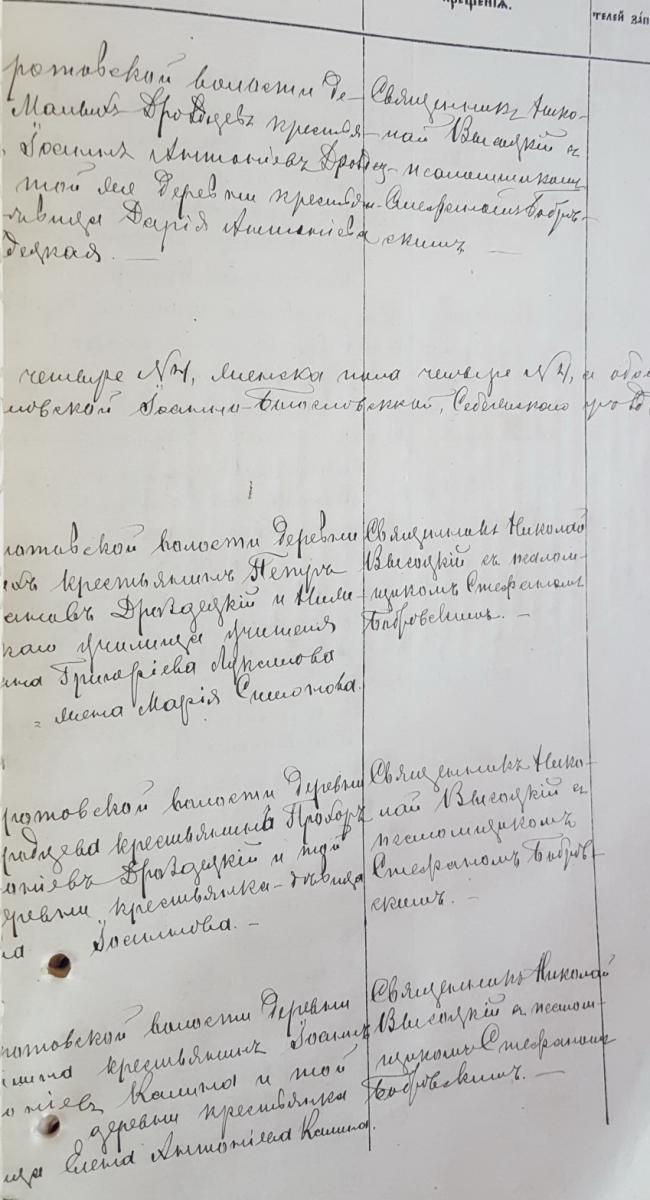 рещенія.
телей зап
ротовской волости де-
Малыхъ Дроздцевъ крестья-
Іоаннъ Антоніевъ Дроздец-
той же деревни крестьян-
Дарія Антоніева
децкая. —
Священникъ Нико-
лай Высоцкій съ
псаломщикомъ
Стефаномъ Бобров-
скимъ —
четыре №4, женска пола четыре №4, а обо
Іоанно-Богословской, Себежского уѣзда
ротовской волости деревни
крестьянинъ Петръ
Дроздецкій и
училища учителя
Григоріева
жена Марія Симонова.
Священникъ Николай
Высоцкій съ псалом-
щикомъ Стефаномъ
Бобровскимъ. —
ротовской волости деревни
крестьянинъ Прохоръ
оніевъ Дроздецкій и той
деревни крестьянка-дѣвица
на Іосифова. —
Священникъ Нико-
лай Высоцкій съ
псаломщикомъ
Стефаномъ Бобров-
скимъ. —
ротовской волости деревни
крестьянинъ Іоаннъ
оніевъ Калина и той
деревни крестьянка
ица Елена Антоніева Калина.
Священникъ Николай
Высоцкій съ псалом-
щикомъ Стефаномъ
Бобровскимъ. —